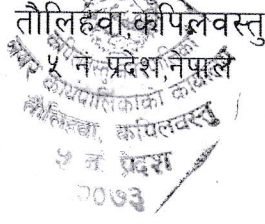 तौलिहवा,कपिलवस्तु
५ नं प्रदेश,नेपाल
नगर कार्यपालिकाको कार्यालय
तौलिहवा, कपिलवस्तु
५ नं प्रदेश
२०७३